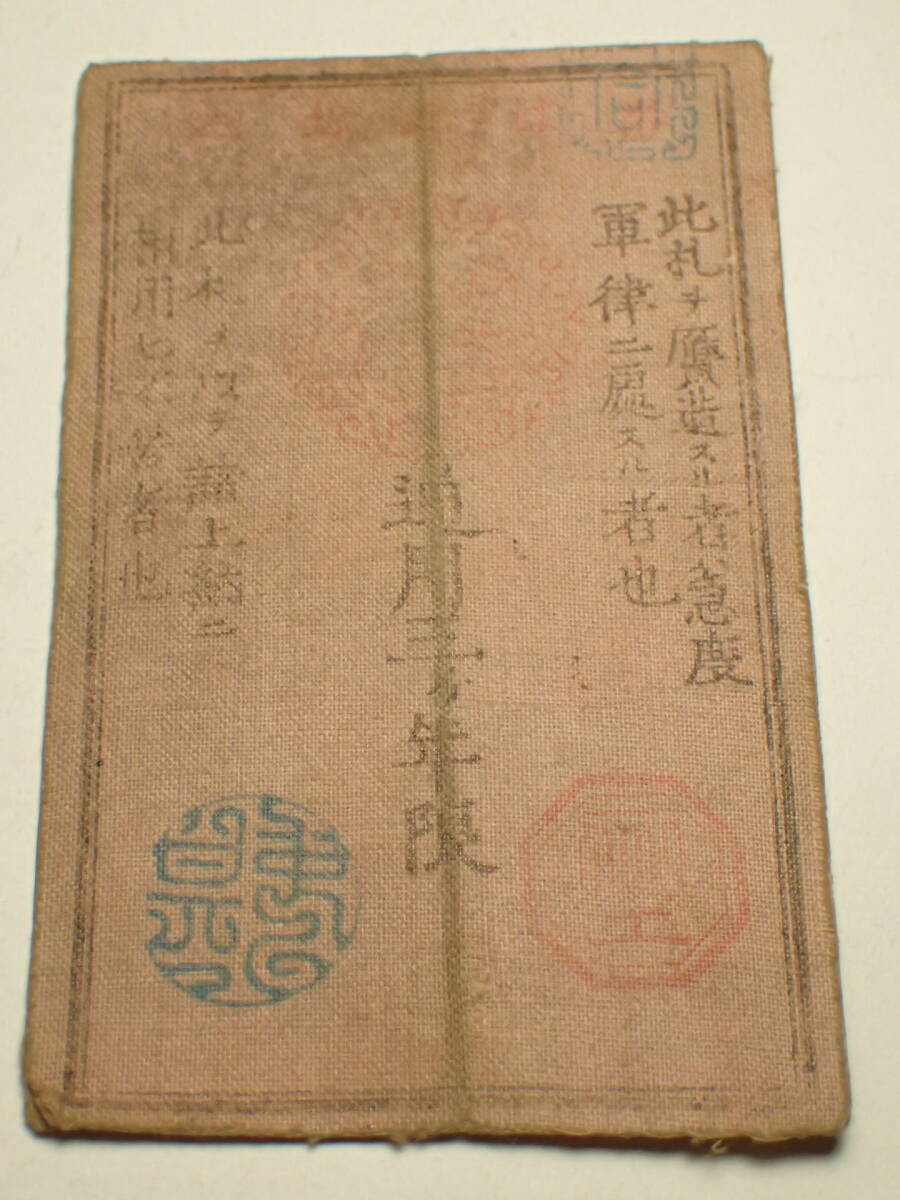 此札ヲ贋造スル者急度
軍律ニ處スル者也
通用三ヶ年限
此札ヲ以テ諸上納ニ
相用ヒ不苦者也